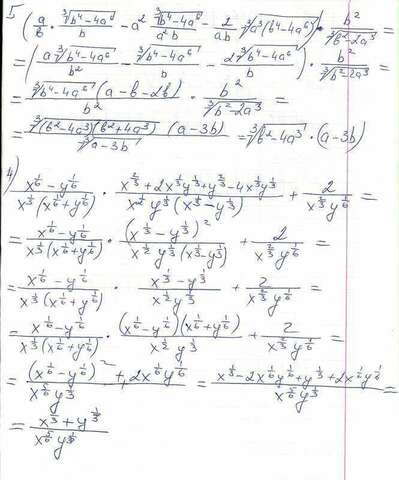 5 (a/b · ∛(b⁴-4a⁶)/b - a² ∛(b⁴-4a⁶)/(a²b) - 2/(ab) ∛(a³(b⁴-4a⁶))) · b²/∛(b²-2a³) =
= (a∛(b⁴-4a⁶)/b² - ∛(b⁴-4a⁶)/b - 2∛(b⁴-4a⁶)/b) · b²/∛(b²-2a³) =
= ∛(b⁴-4a⁶) (a-b-2b)/b² · b²/∛(b²-2a³) =
= ∛((b²-4a³)(b²+4a³)) (a-3b)/∛(a-3b) = ∛(b²-4a³) · (a-3b)
4) (x^(1/6)-y^(1/6))/(x^(1/3)(x^(1/6)+y^(1/6))) · (x^(2/3)+2x^(1/3)y^(1/3)+y^(2/3)-4x^(1/3)y^(1/3))/(x^(1/2)y^(1/3)(x^(1/3)-y^(1/3))) + 2/(x^(2/3)y^(1/6)) =
= (x^(1/6)-y^(1/6))/(x^(1/3)(x^(1/6)+y^(1/6))) · (x^(1/3)-y^(1/3))²/(x^(1/2)y^(1/3)(x^(1/3)-y^(1/3))) + 2/(x^(2/3)y^(1/6)) =
= (x^(1/6)-y^(1/6))/(x^(1/3)(x^(1/6)+y^(1/6))) · (x^(1/3)-y^(1/3))/(x^(1/2)y^(1/3)) + 2/(x^(2/3)y^(1/6)) =
= (x^(1/6)-y^(1/6))/(x^(1/3)(x^(1/6)+y^(1/6))) · (x^(1/6)-y^(1/6))(x^(1/6)+y^(1/6))/(x^(1/2)y^(1/3)) + 2/(x^(2/3)y^(1/6)) =
= ((x^(1/6)-y^(1/6))² + 2x^(1/6)y^(1/6))/(x^(5/6)y^(1/3)) = (x^(1/3)-2x^(1/6)y^(1/6)+y^(1/3)+2x^(1/6)y^(1/6))/(x^(5/6)y^(1/3)) =
= (x^(1/3)+y^(1/3))/(x^(5/6)y^(1/3))